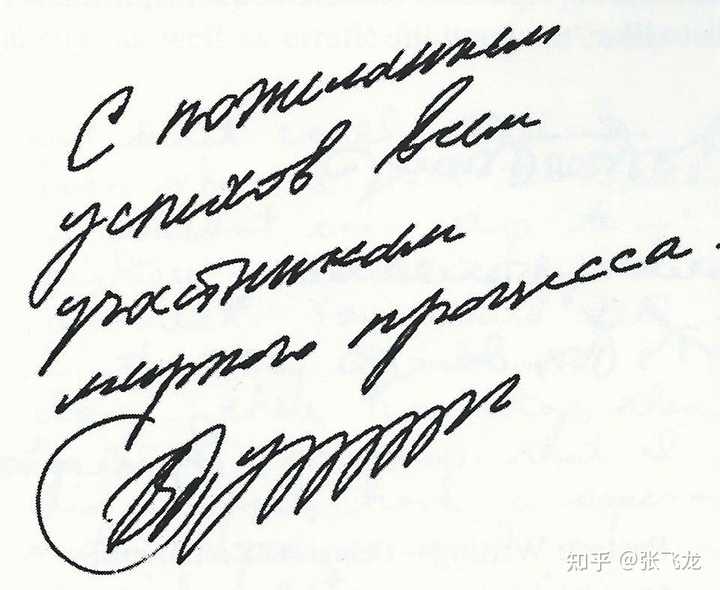 С пожеланием
успехов всем
участникам
мирного процесса.
知乎 @张飞龙